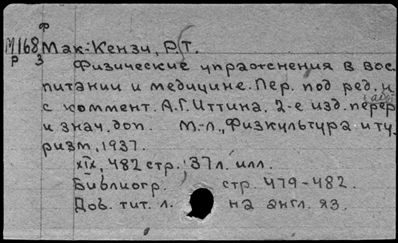 Ф
М168 Мак-Кензи, Р.Т.
Р 3 Физические упражнения в вос-
питании и медицине. Пер. под ред. и
с коммент. А.Г. Иттина. 2-е изд. перераб.
и знач. доп. М.-Л., "Физкультура и ту-
ризм, 1937.
XIX, 482 стр., 37 л. илл.
Библиогр. стр. 479-482.
Доб. тит. л. на англ. яз.